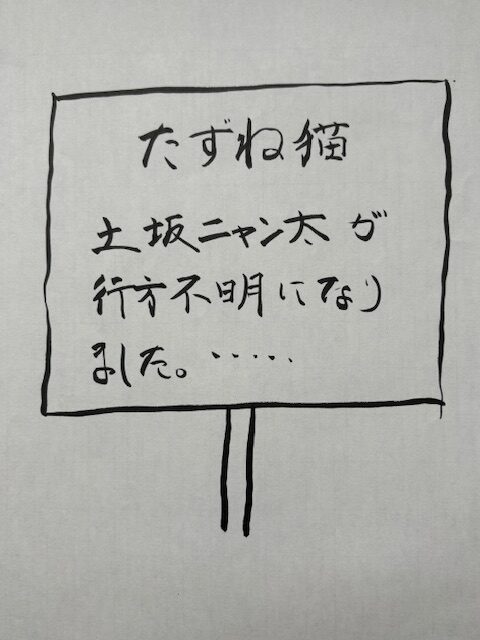 たずね猫
土坂ニャン太が
行方不明になり
ました。・・・・・